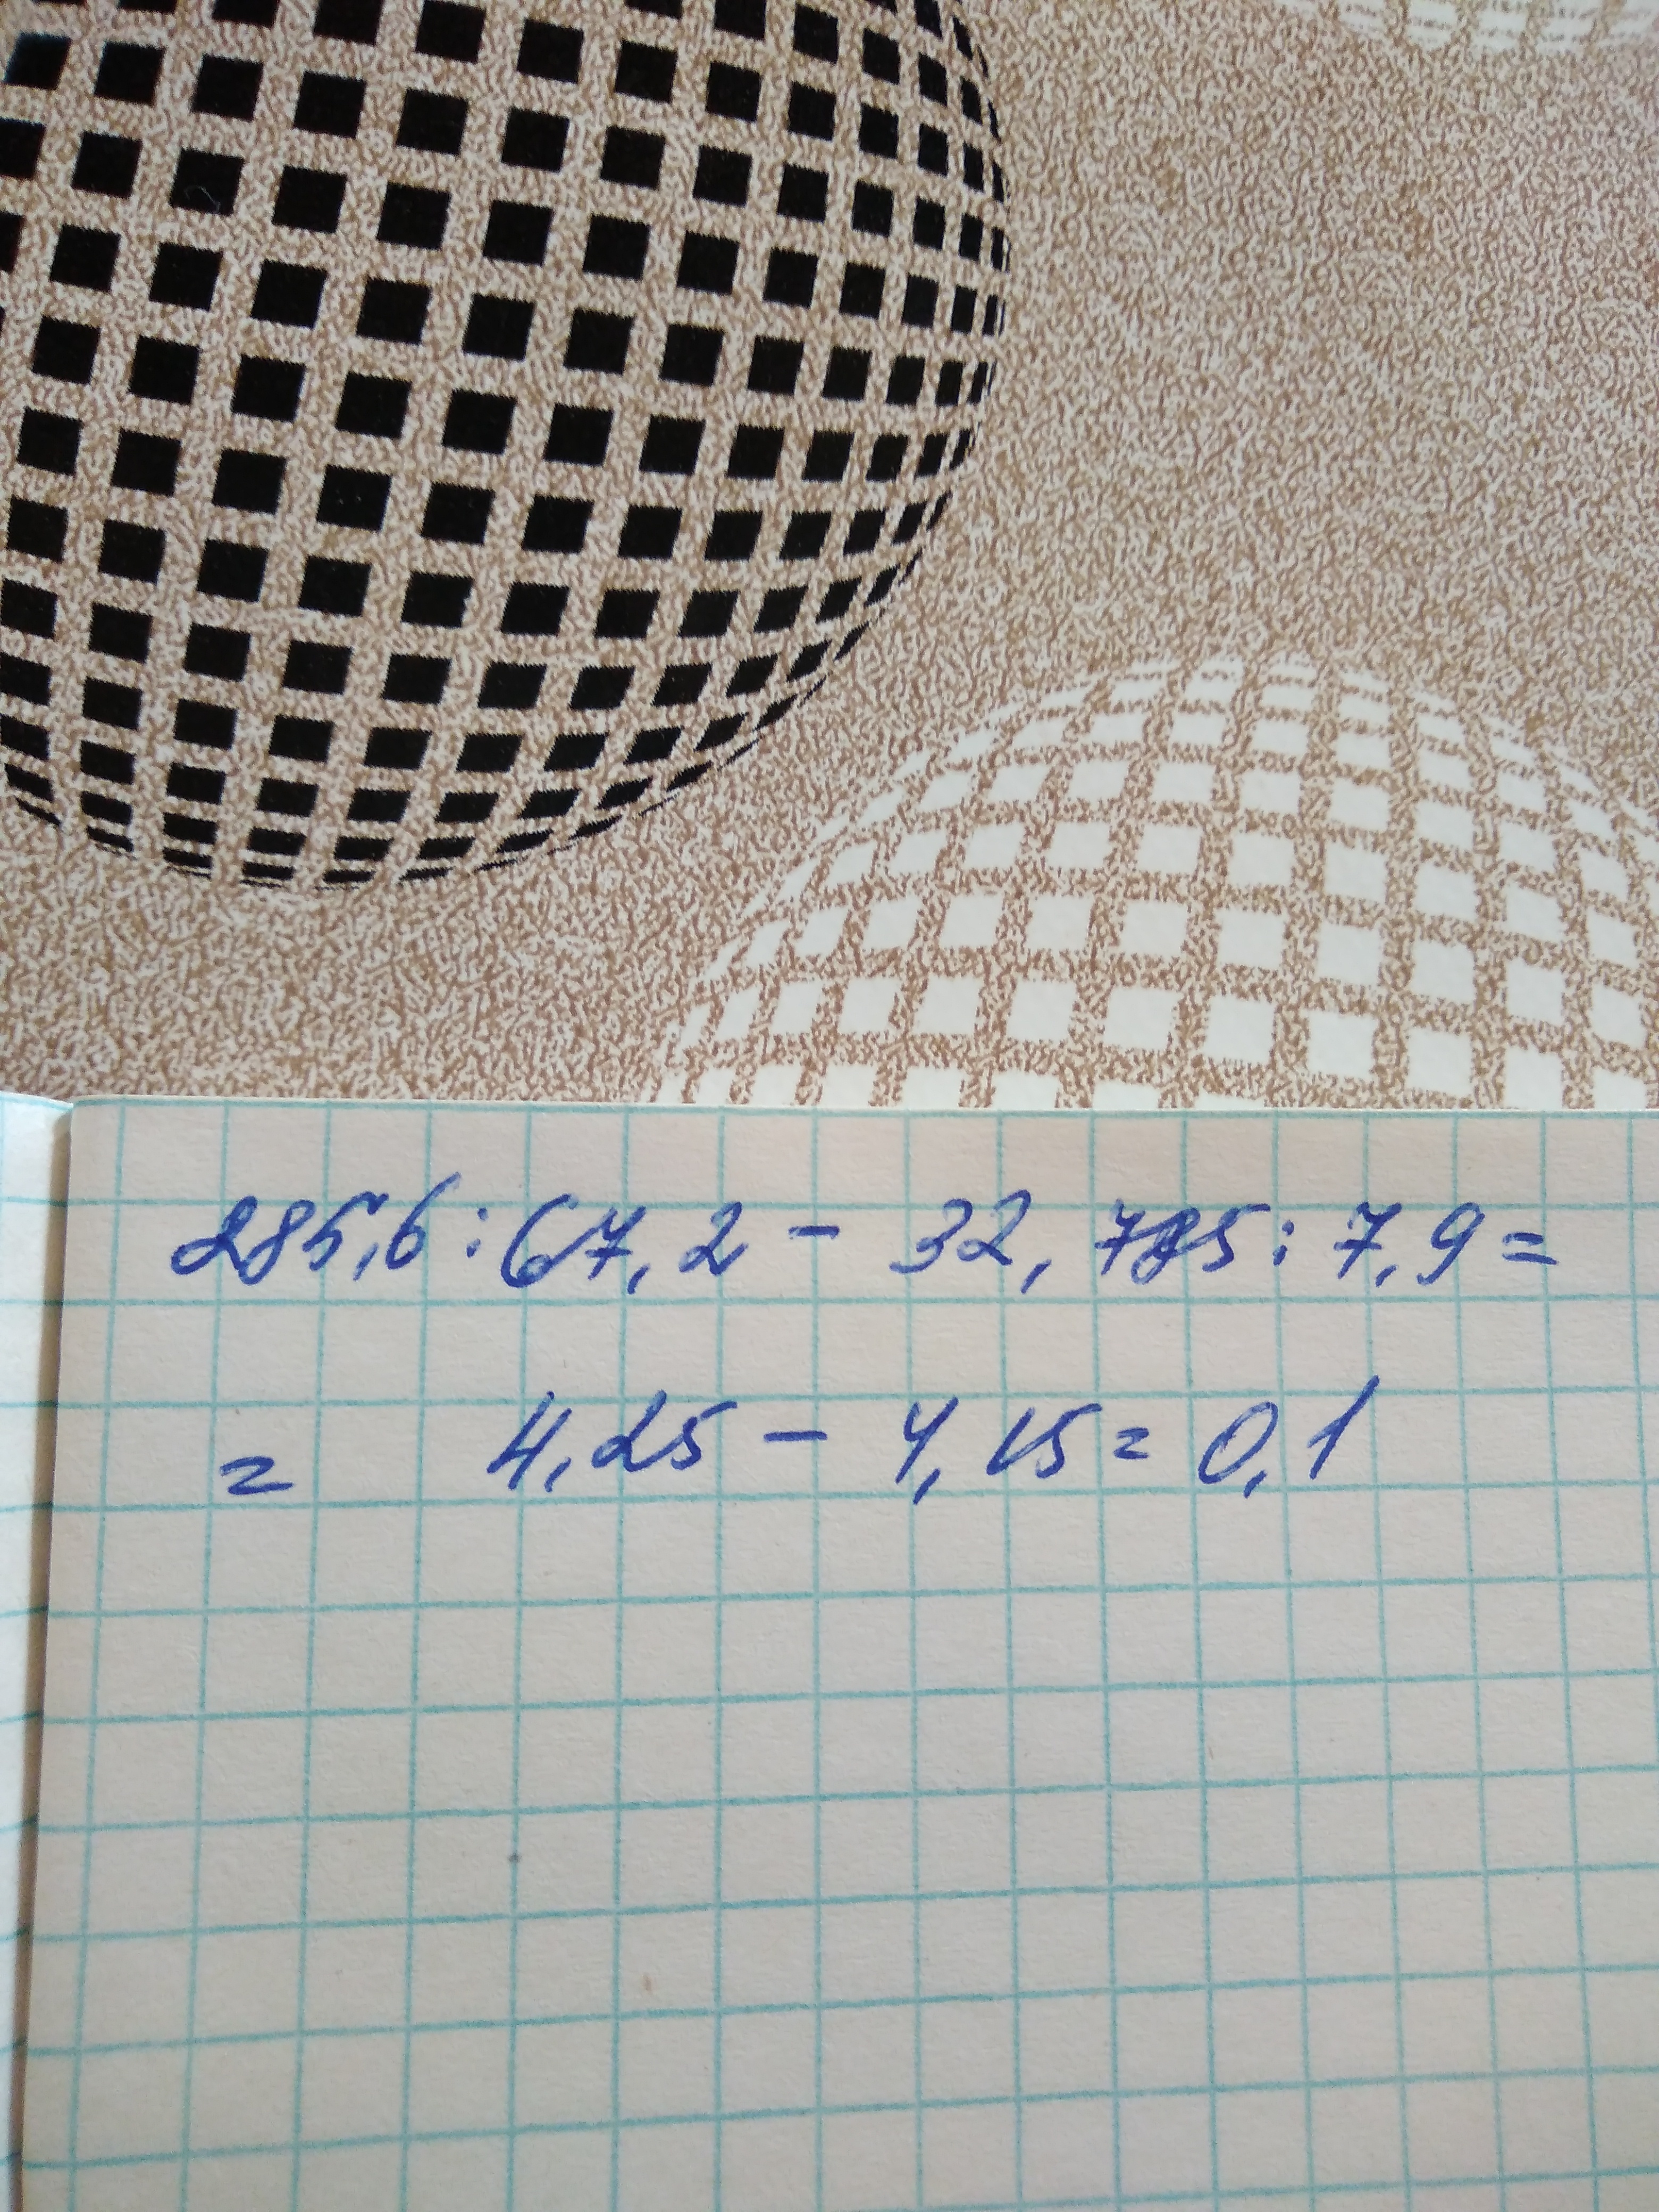 285,6 : 67,2 - 32,785 : 7,9 =
= 4,25 - 4,15 = 0,1